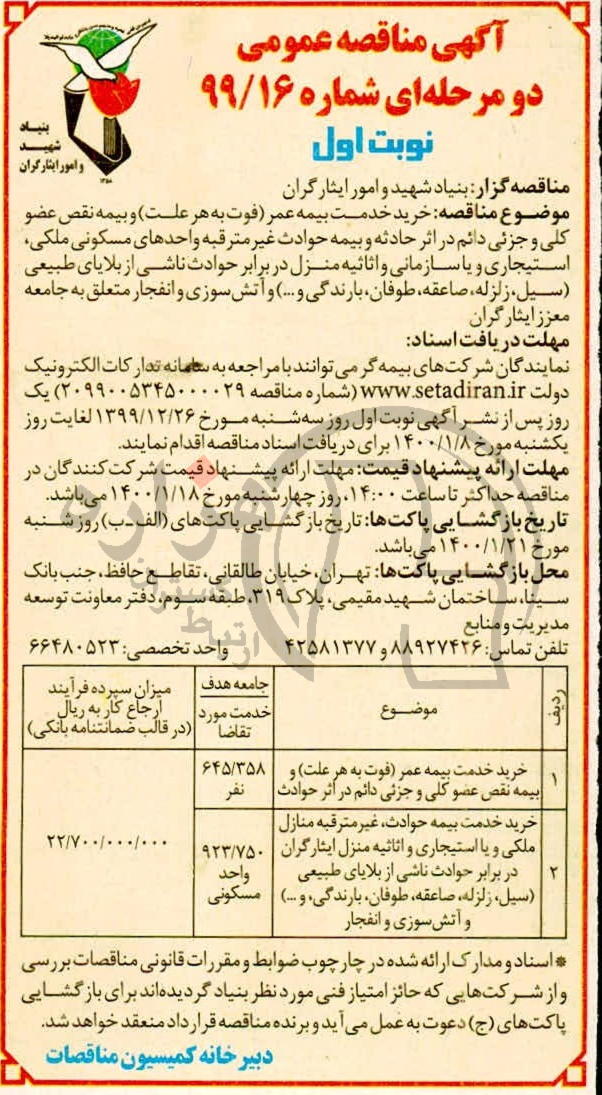 آگهی مناقصه عمومی
دو مرحله‌ای شماره ۹۹/۱۶
نوبت اول
بنیاد
شهید
و امور ایثارگران
۱۳۵۸
مناقصه‌گزار: بنیاد شهید و امور ایثارگران
موضوع مناقصه: خرید خدمت بیمه عمر (فوت به هر علت) و بیمه نقص عضو
کلی و جزئی دائم در اثر حادثه و بیمه حوادث غیرمترقبه واحدهای مسکونی ملکی،
استیجاری و یا سازمانی و اثاثیه منزل در برابر حوادث ناشی از بلایای طبیعی
(سیل، زلزله، صاعقه، طوفان، بارندگی و...) و آتش‌سوزی و انفجار متعلق به جامعه
معزز ایثارگران
مهلت دریافت اسناد:
نمایندگان شرکت‌های بیمه‌گر می‌توانند با مراجعه به سامانه تدارکات الکترونیک
دولت www.setadiran.ir (شماره مناقصه ۲۰۹۹۰۰۵۳۴۵۰۰۰۰۲۹) یک
روز پس از نشر آگهی نوبت اول روز سه‌شنبه مورخ ۱۳۹۹/۱۲/۲۶ لغایت روز
یکشنبه مورخ ۱۴۰۰/۱/۸ برای دریافت اسناد مناقصه اقدام نمایند.
مهلت ارائه پیشنهاد قیمت: مهلت ارائه پیشنهاد قیمت شرکت‌کنندگان در
مناقصه حداکثر تا ساعت ۱۴:۰۰، روز چهارشنبه مورخ ۱۴۰۰/۱/۱۸ می‌باشد.
تاریخ بازگشایی پاکت‌ها: تاریخ بازگشایی پاکت‌های (الف-ب) روز شنبه
مورخ ۱۴۰۰/۱/۲۱ می‌باشد.
محل بازگشایی پاکت‌ها: تهران، خیابان طالقانی، تقاطع حافظ، جنب بانک
سینا، ساختمان شهید مقیمی، پلاک ۳۱۹، طبقه سوم، دفتر معاونت توسعه
مدیریت و منابع
تلفن تماس: ۸۸۹۲۷۴۲۶ و ۴۲۵۸۱۳۷۷ واحد تخصصی: ۶۶۴۸۰۵۲۳
ردیف
موضوع
جامعه هدف
خدمت مورد
تقاضا
میزان سپرده فرآیند
ارجاع کار به ریال
(در قالب ضمانتنامه بانکی)
۱
خرید خدمت بیمه عمر (فوت به هر علت) و
بیمه نقص عضو کلی و جزئی دائم در اثر حوادث
۶۴۵/۳۵۸
نفر
۲
خرید خدمت بیمه حوادث، غیرمترقبه منازل
ملکی و یا استیجاری و اثاثیه منزل ایثارگران
در برابر حوادث ناشی از بلایای طبیعی
(سیل، زلزله، صاعقه، طوفان، بارندگی، و...)
و آتش‌سوزی و انفجار
۹۲۳/۷۵۰
واحد
مسکونی
۲۲/۷۰۰/۰۰۰/۰۰۰
*اسناد و مدارک ارائه شده در چارچوب ضوابط و مقررات قانونی مناقصات بررسی
و از شرکت‌هایی که حائز امتیاز فنی مورد نظر بنیاد گردیده‌اند برای بازگشایی
پاکت‌های (ج) دعوت به عمل می‌آید و برنده مناقصه قرارداد منعقد خواهد شد.
دبیرخانه کمیسیون مناقصات
هزاره